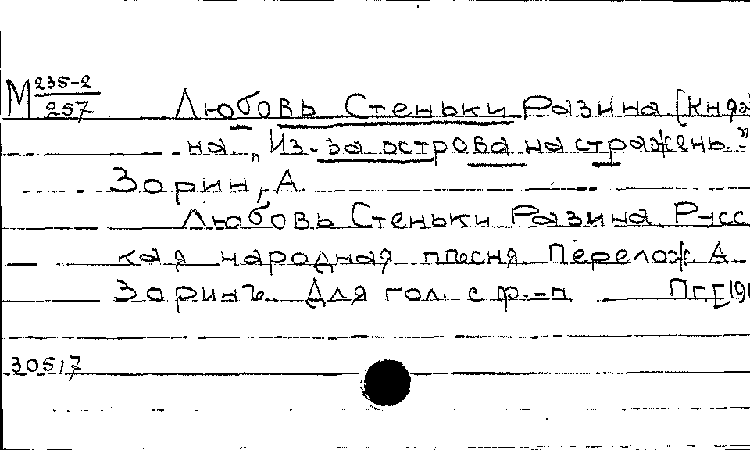 М 235-2
257
Любовь Стеньки Разина [Княж
на „Из-за острова на стрежень"
Зорин, А.
Любовь Стеньки Разина. Русс
кая народная песня. Перелож. А.
Зоринъ. Для гол. с ф.-п. Пг. [191
30517